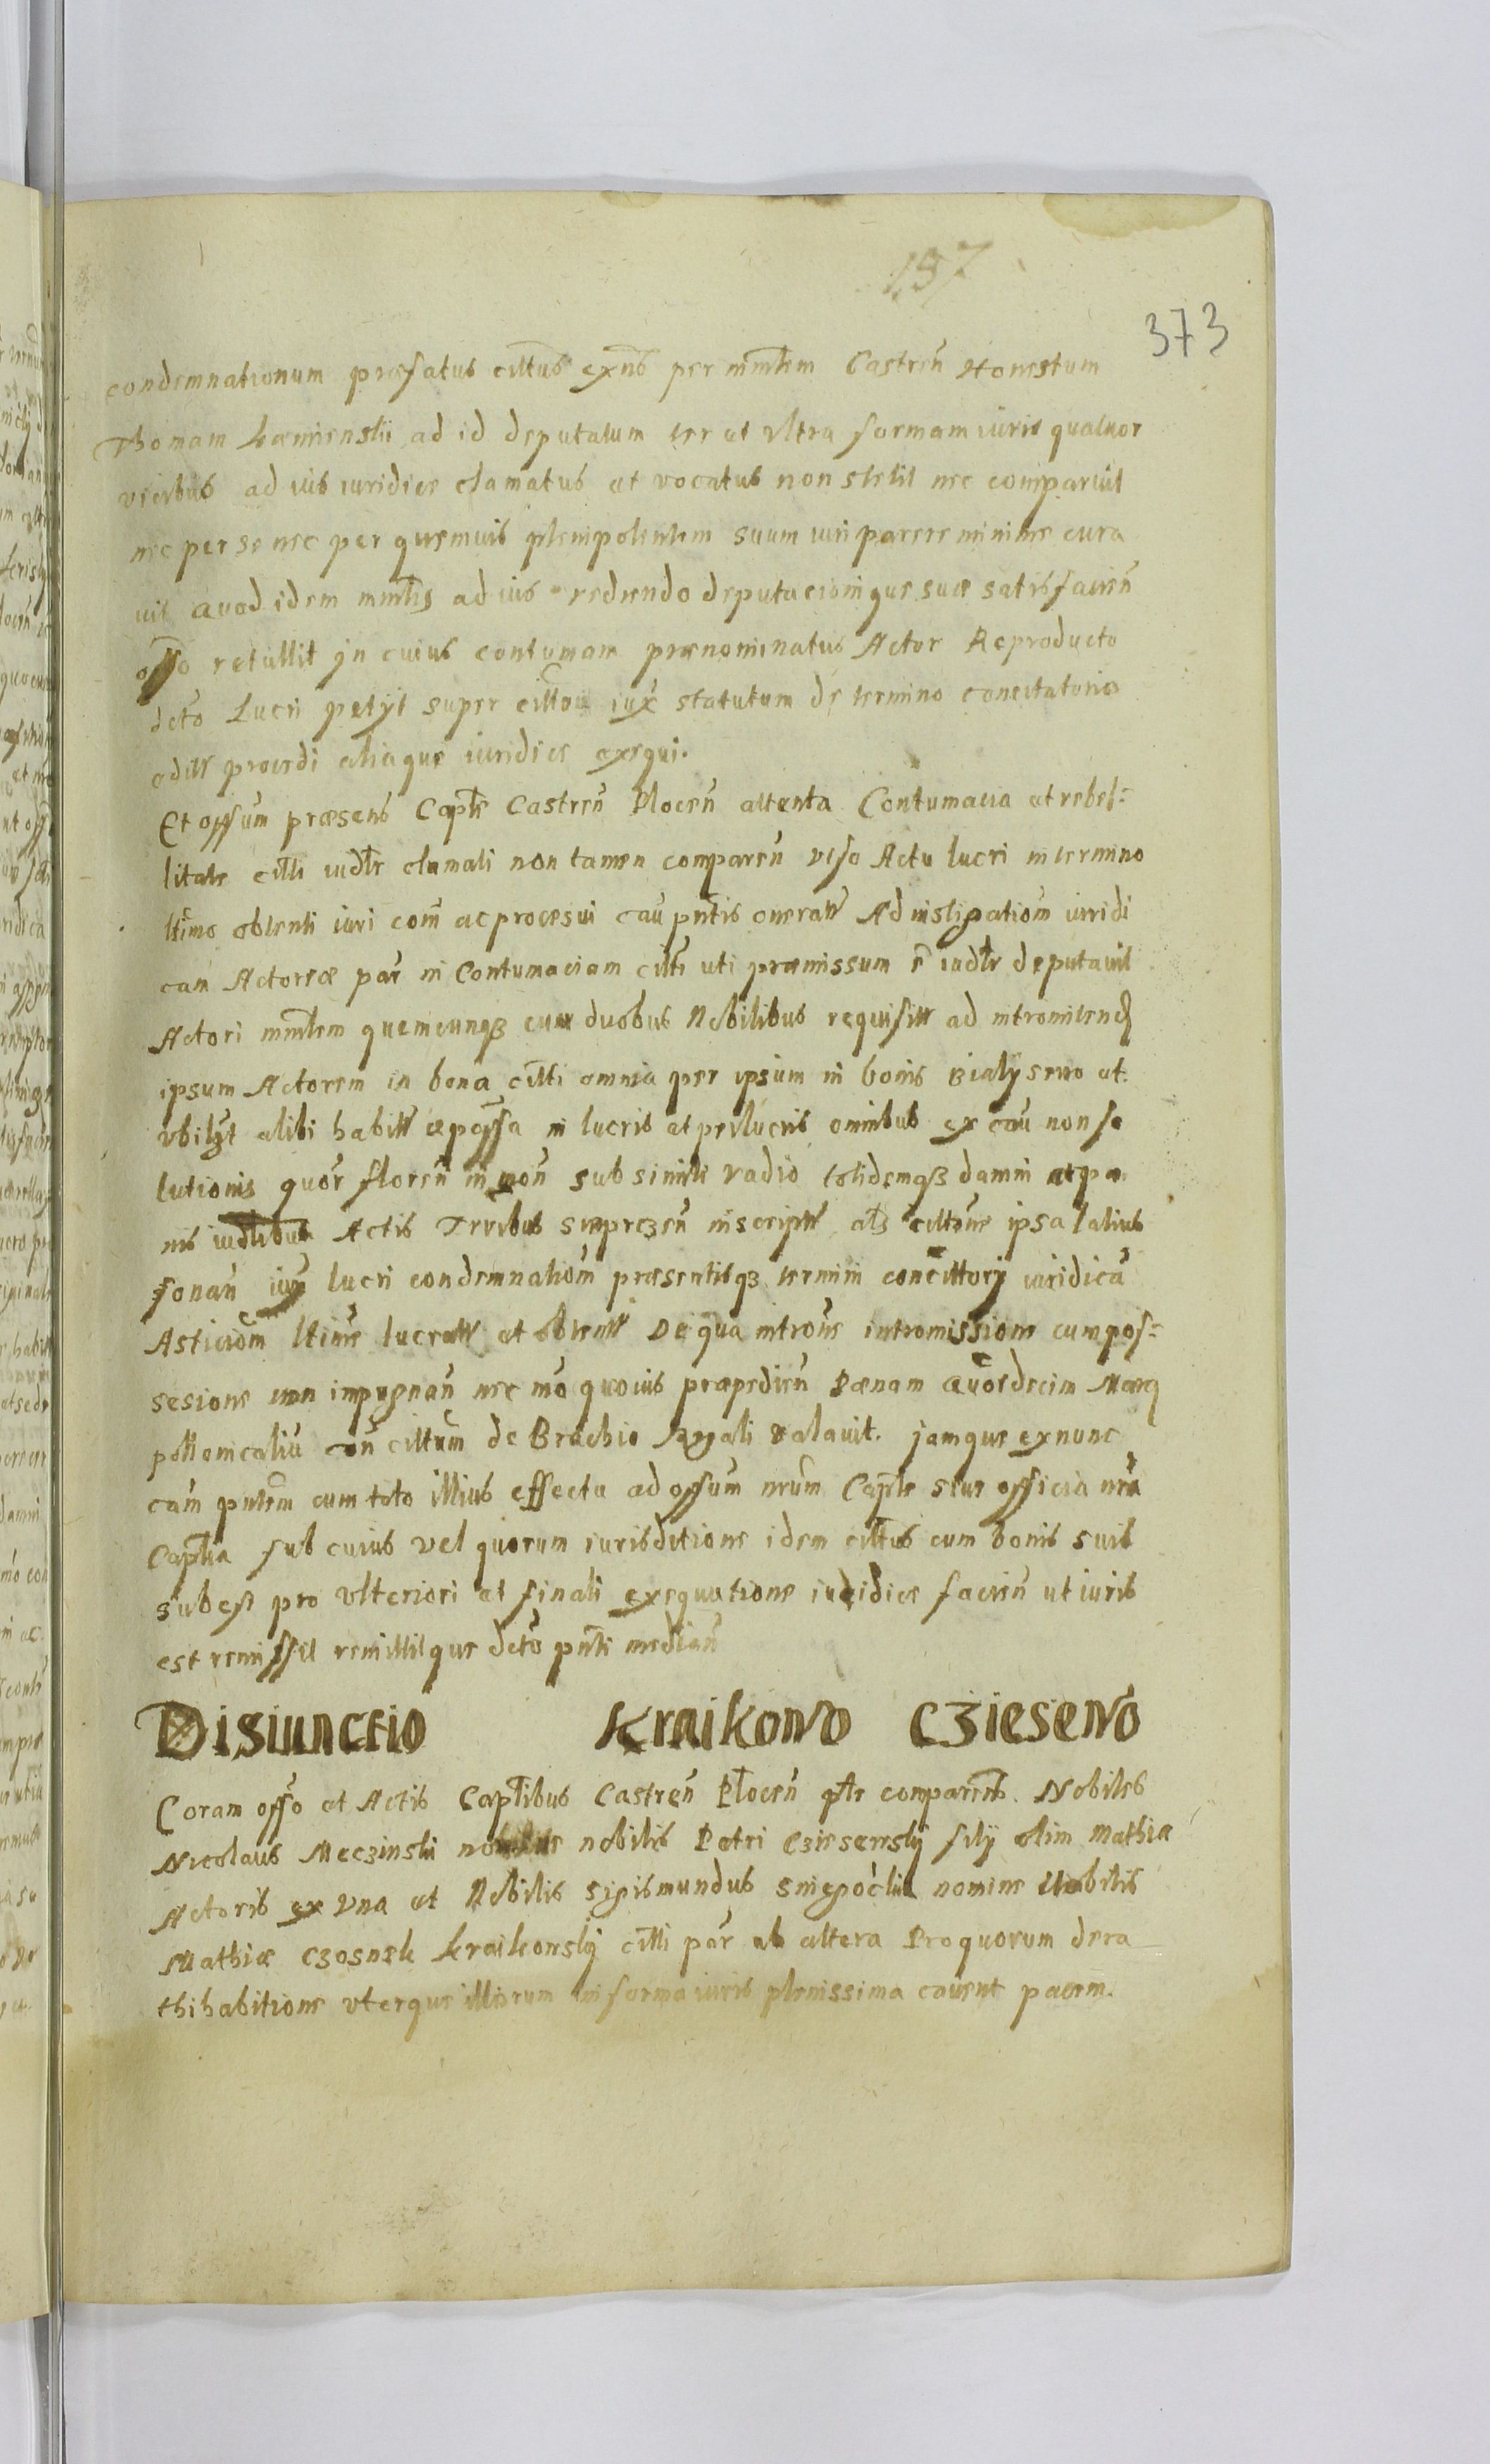 197
373
condemnationum præfatus cittus exns per mnlem Castren Honestum
Thomam Kamienski ad id deputatum ter et vltra formam iuris quatuor
vicibus ad ius iuridice clamatus et vocatus non stetit nec comparuit
nec per se nec per quemuis plenipotentem suum iuri parere minime cura
uit Quod idem mnlis ad ius redeundo deputacionique suæ satisfacien
offo retullit jn cuius contumam prænominatus Actor Reproducto
dcto Lucri petijt super cittou iux statutum de termino concitatorio
procedi aliaque iuridice exequi.
Et offum præsens Capte Castren Plocen attenta Contumacia et rebel=
litate citti iudlr clamati non tamen comparen viso Actu lucri in termino
ltimo obtenti iuri com ac processui cau pntis Ad instigationm iuridi
cam Actoreæ par in Contumaciam citti uti præmissum e iudlr deputauit
Actori mnlem quemcunqz cum duobus Nobilibus requisitt ad intromitend
ipsum Actorem in bona citti omnia per ipsum in bonis Bialÿsewo et
vbilzt alibi habitt in lucris et perlucris omnibus ex cau non so
lutionis quor floren in mon sub simili vadio totidemqz damni et pæ
nis iudlibus Actis Trribus Sieprczen inscriptt alz cittone ipsa latius
sonan iux lucri condemnationm præsentisqz termini concittorj iuridicu
Asticiom ltime lucratt et obtentt De qua introne intromissione cum pos=
sesione non impugnan nec mo quouis præpedien Pænam quordecim Marq
pollonicaliu con cittum de Brachio Regali valauit. jamque ex nunc
cam pntem cum toto illius effectu ad offum nrum Capte siue officia nra
Captia sub cuius vel quorum iurisditione idem cittus cum bonis suis
subest pro vlteriori et finali exequutione iuridice facien ut iuris
est remissit remittitque dcto pnti median
Disiunctio Kraikowo Cziesewo
Coram offo et Actis Captibus Castren Plocen ptr comparens. Nobiles
Nicolaus Meczinski nomine nobilis Petri Cziesewskj filij olim Mathiæ
Actoris ex Vna et Nobilis Sigismundus Sniegoczki nomine Nobilis
Mathiæ Czosnek Kraikowskj citti par ab altera Pro quorum de ra
thihabitione vterque illorum in forma iuris plenissima cauent pacem.